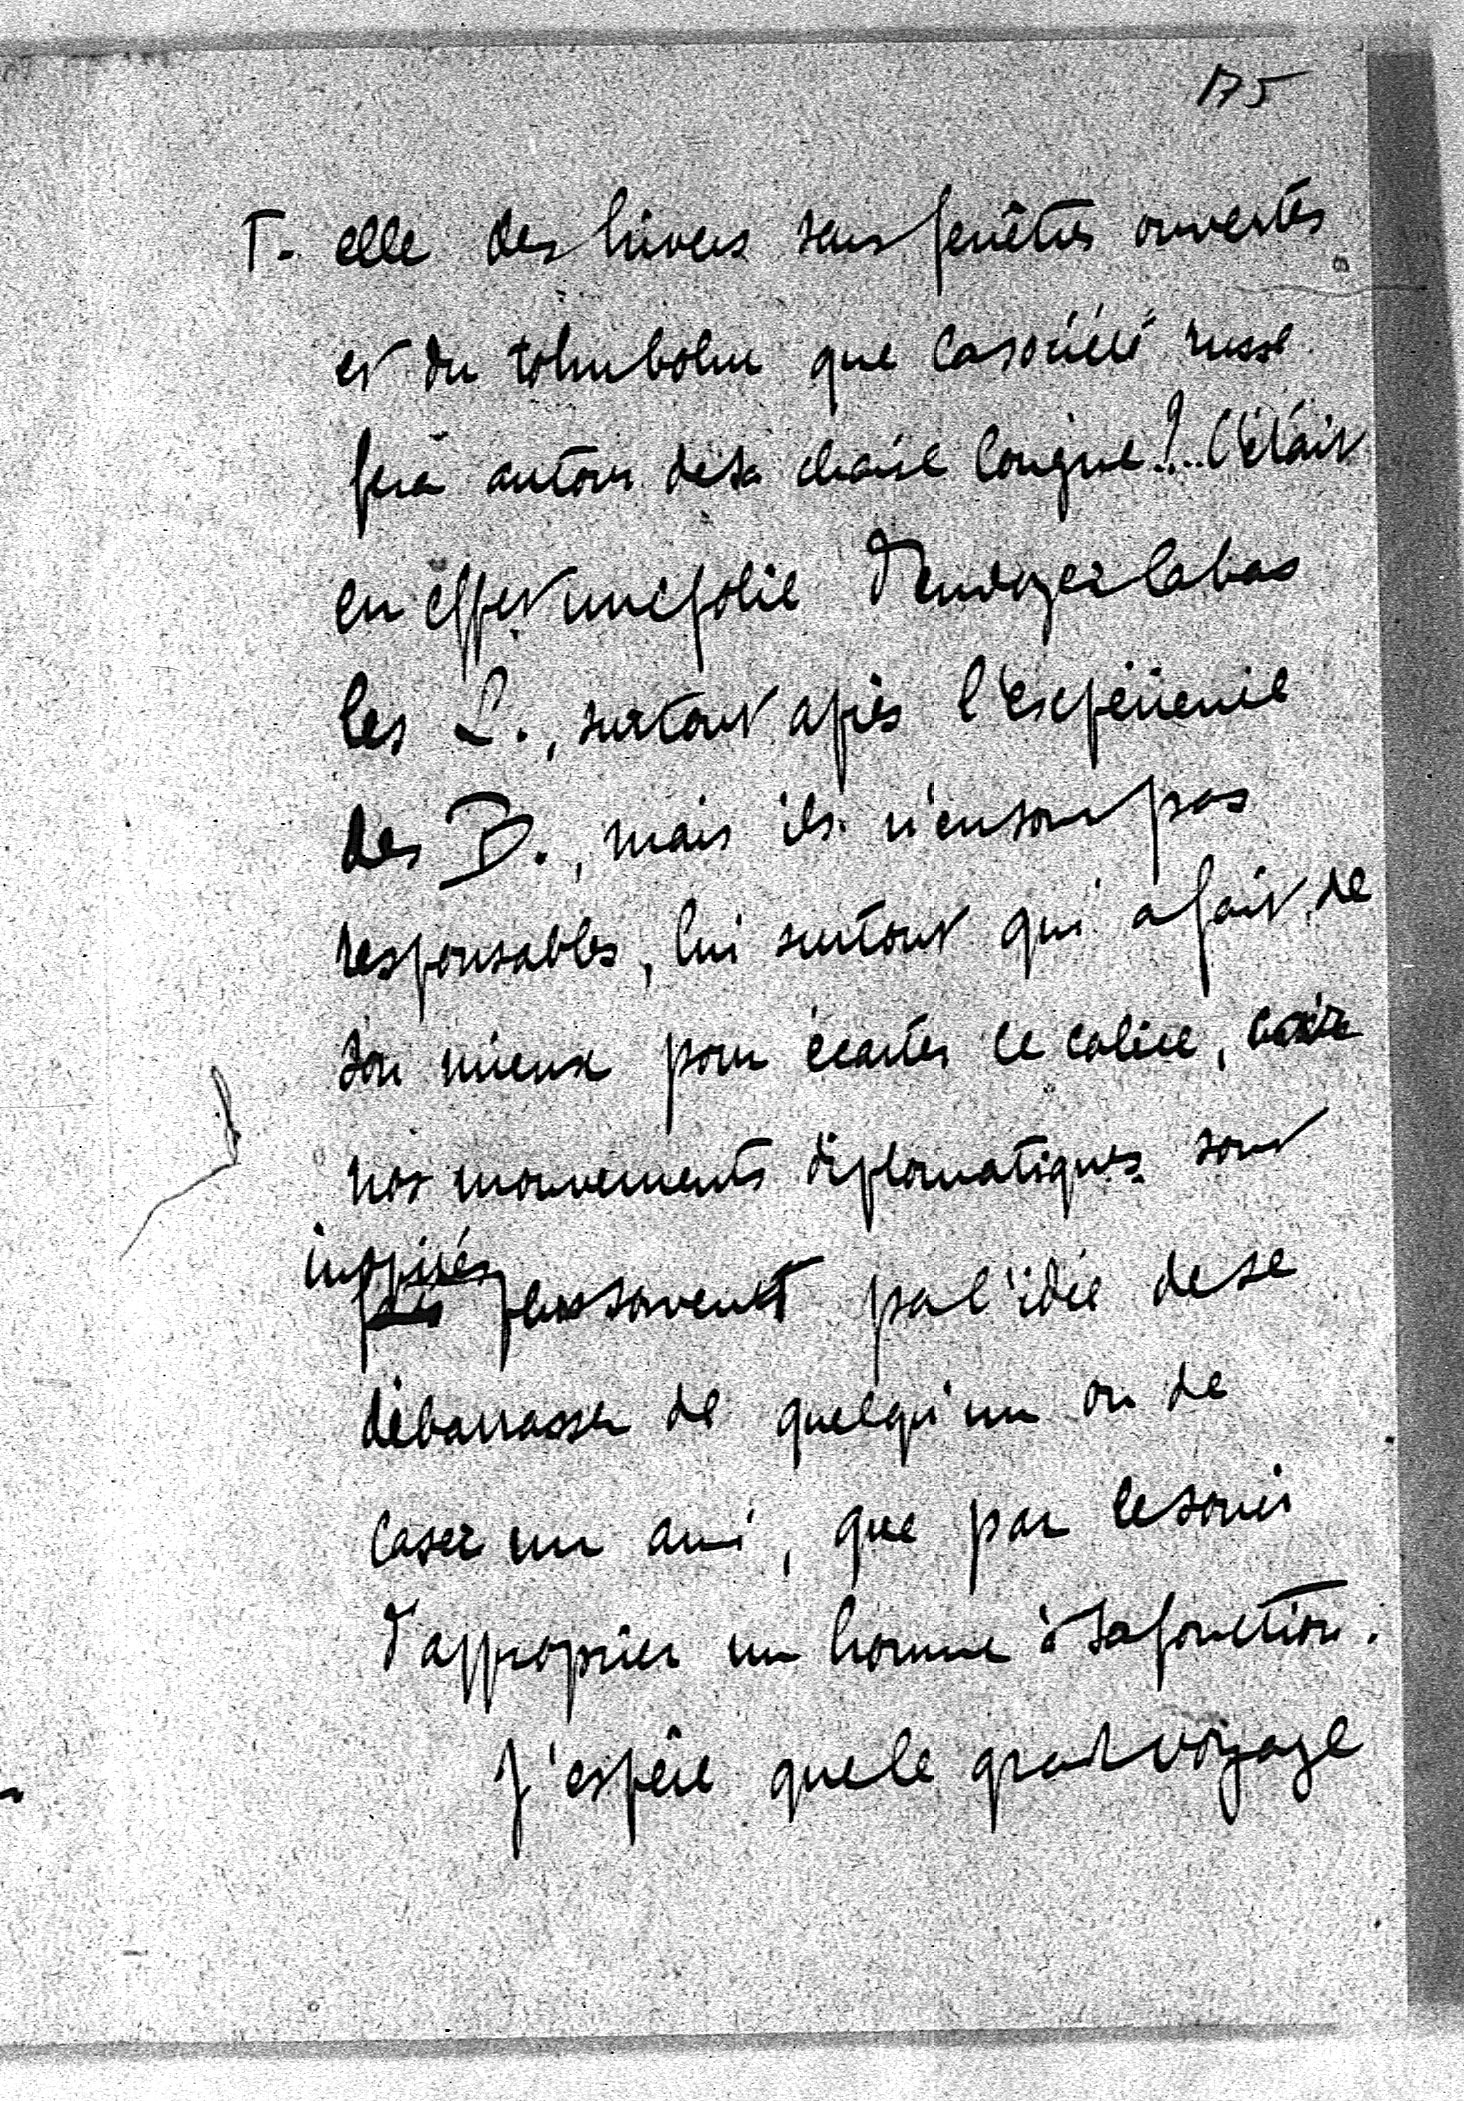 175
T- elle des hivers sans fenêtres ouvertes
et du tohubohu que la société russe
fera autour de sa chaise longue!.. C'était
en effet une folie d'envoyer là bas
les L., surtout après l'expérience
des B., mais ils n'en sont pas
responsables, lui surtout qui a fait de
son mieux pour écarter ce calice,
nos mouvements diplomatiques sont
inspirés plus souvent par l'idée de se
débarrasser de quelqu'un ou de
caser un ami, que par le souci
d'approprier un homme à sa fonction.
J'espère que le grand voyage